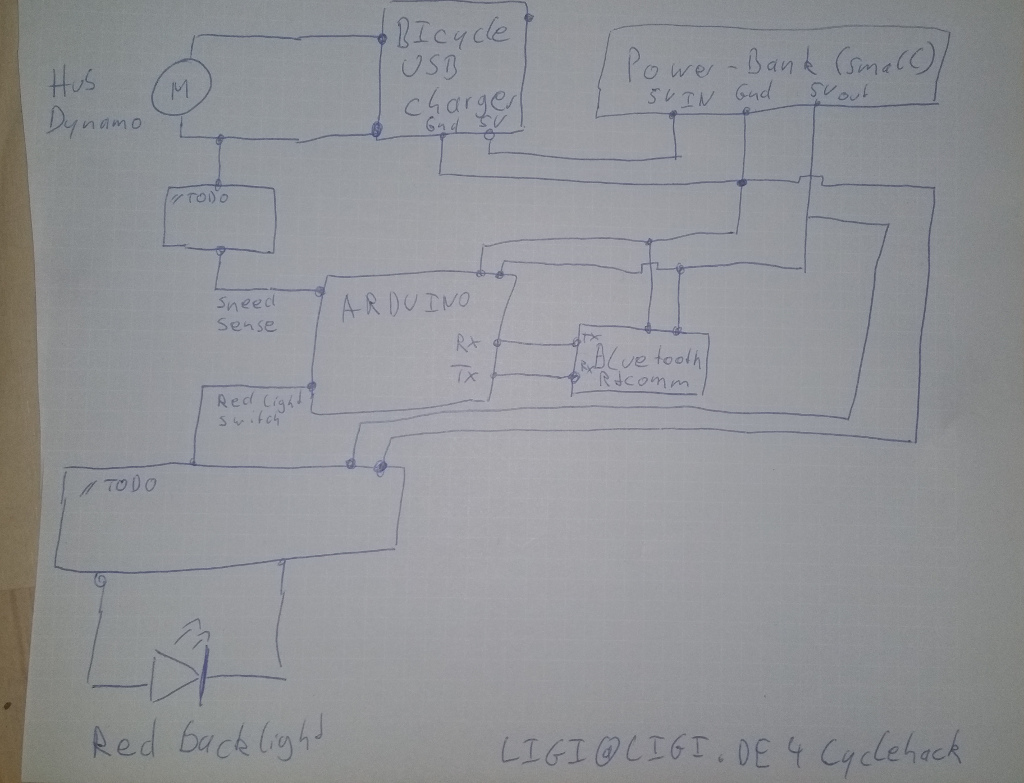 Hub
Dynamo
M
BIcycle
USB
charger
Gnd 5V
Power-Bank (small)
5V IN Gnd 5V out
//TODO
Speed
Sense
ARDUINO
RX
TX
TX
Rx
Bluetooth
Rfcomm
Red Light
switch
//TODO
Red backlight
LIGI@LIGI.DE 4 Cyclehack